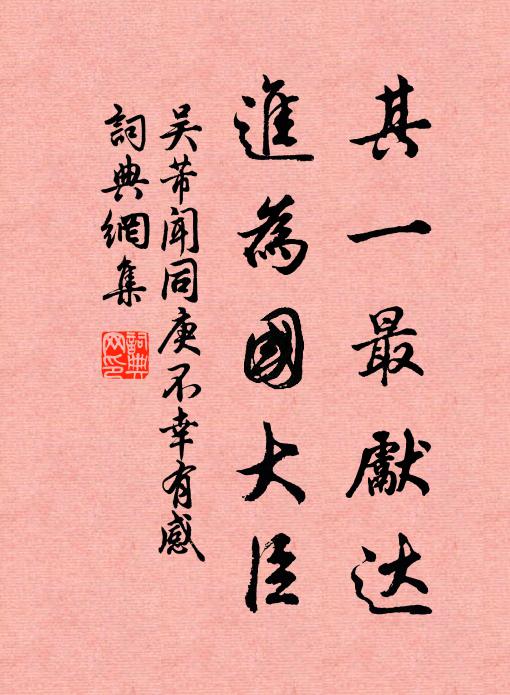 其一最獻达
進為國大臣
吴芾闻同庚不幸有感
詞典網集
詞典网印